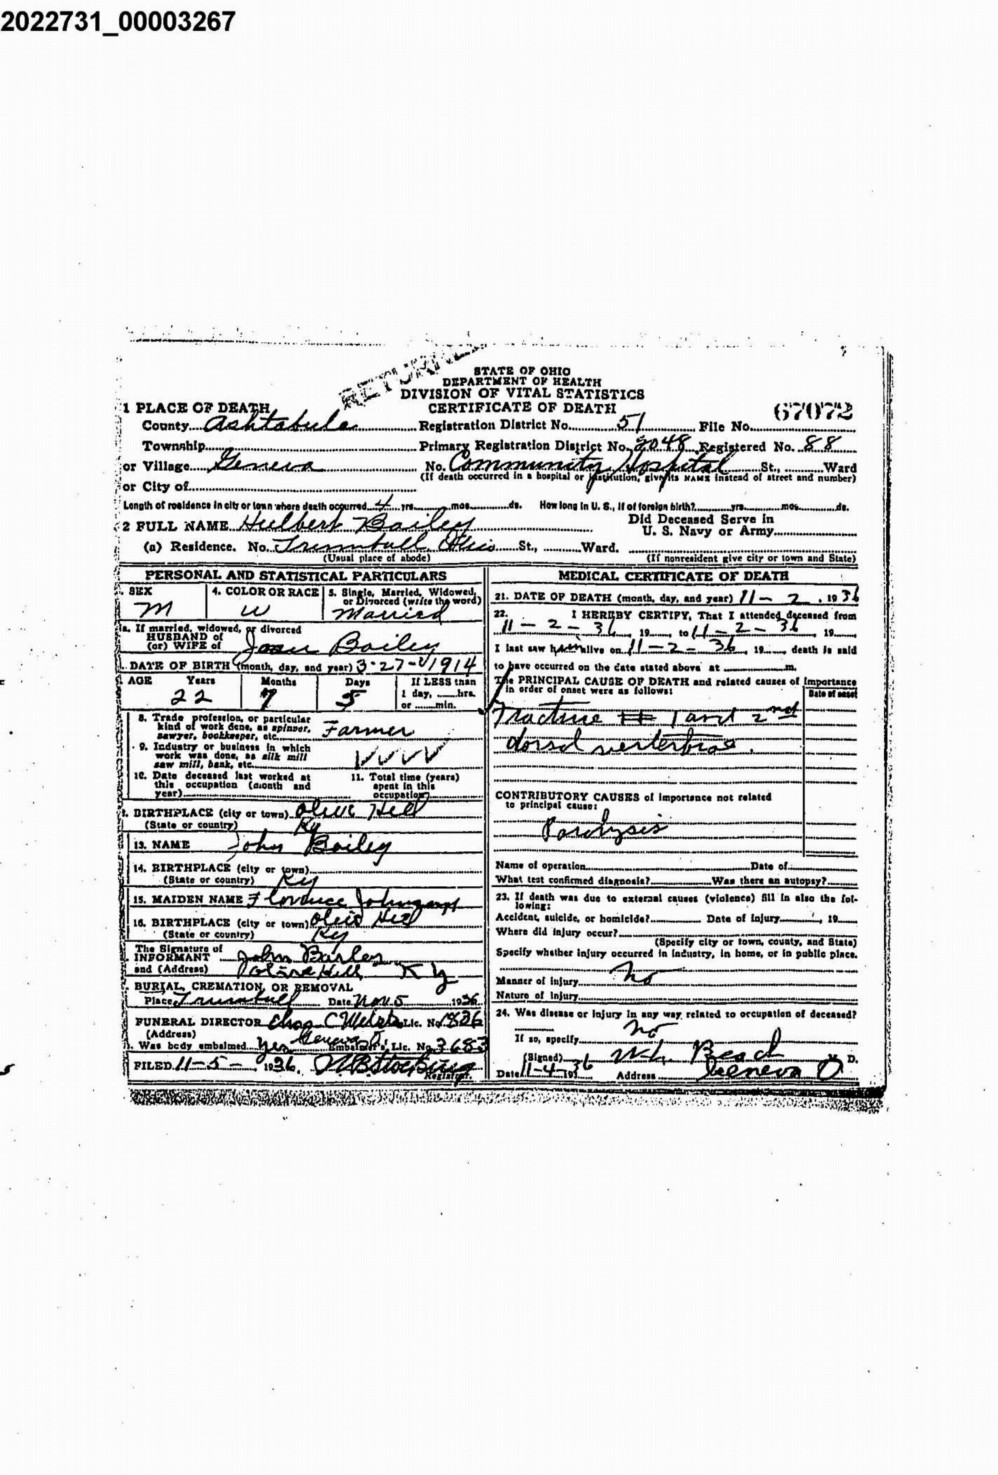 2022731_00003267
STATE OF OHIO
DEPARTMENT OF HEALTH
DIVISION OF VITAL STATISTICS
CERTIFICATE OF DEATH
67072
1 PLACE OF DEATH
County Ashtabula Registration District No. 51 File No.
Township Primary Registration District No. 2048 Registered No. 88
or Village Geneva No. Community Hospital St., Ward
(If death occurred in a hospital or institution, give its NAME instead of street and number)
or City of
Length of residence in city or town where death occurred 4 yrs. mos. ds. How long in U. S., if of foreign birth? yrs. mos. ds.
2 FULL NAME Hulbert Bailey Did Deceased Serve in U. S. Navy or Army
(a) Residence. No. Trumbull Ohio St., Ward.
(Usual place of abode) (If nonresident give city or town and State)
PERSONAL AND STATISTICAL PARTICULARS
SEX M
4. COLOR OR RACE W
5. Single, Married, Widowed, or Divorced (write the word) Married
5a. If married, widowed, or divorced
HUSBAND of
(or) WIFE of Bailey
DATE OF BIRTH (month, day, and year) 3-27-1914
AGE Years 22 Months 7 Days 5 If LESS than 1 day, hrs. or min.
8. Trade profession, or particular kind of work done, as spinner, sawyer, bookkeeper, etc. Farmer
9. Industry or business in which work was done, as silk mill saw mill, bank, etc.
10. Date deceased last worked at this occupation (month and year)
11. Total time (years) spent in this occupation
BIRTHPLACE (city or town) Olive Hill
(State or country) Ky
13. NAME John Bailey
14. BIRTHPLACE (city or town)
(State or country) Ky
15. MAIDEN NAME
16. BIRTHPLACE (city or town) Olive Hill
(State or country) Ky
The Signature of
INFORMANT John Bailey
and (Address) Olive Hill Ky
BURIAL, CREMATION, OR REMOVAL
Place Trumbull Date Nov. 5 1936
FUNERAL DIRECTOR Chas C Lic. No. 1826
(Address) Geneva O
Was body embalmed Yes Embalmer's Lic. No. 3683
FILED 11-5- 1936. Registrar.
MEDICAL CERTIFICATE OF DEATH
21. DATE OF DEATH (month, day, and year) 11-2, 1936
22. I HEREBY CERTIFY, That I attended deceased from
11-2-36, 19 to 11-2-36, 19
I last saw h alive on 11-2-36, 19 death is said
to have occurred on the date stated above at m.
The PRINCIPAL CAUSE OF DEATH and related causes of importance
in order of onset were as follows: Date of onset
Fracture # 1 and 2nd
dorsal vertebrae.
CONTRIBUTORY CAUSES of importance not related
to principal cause:
Paralysis
Name of operation Date of
What test confirmed diagnosis? Was there an autopsy?
23. If death was due to external causes (violence) fill in also the following:
Accident, suicide, or homicide? Date of injury 19
Where did injury occur?
(Specify city or town, county, and State)
Specify whether injury occurred in industry, in home, or in public place.
Manner of injury No
Nature of injury
24. Was disease or injury in any way related to occupation of deceased?
No
If so, specify
(Signed) Beach M. D.
Date 11-4-1936 Address Geneva O